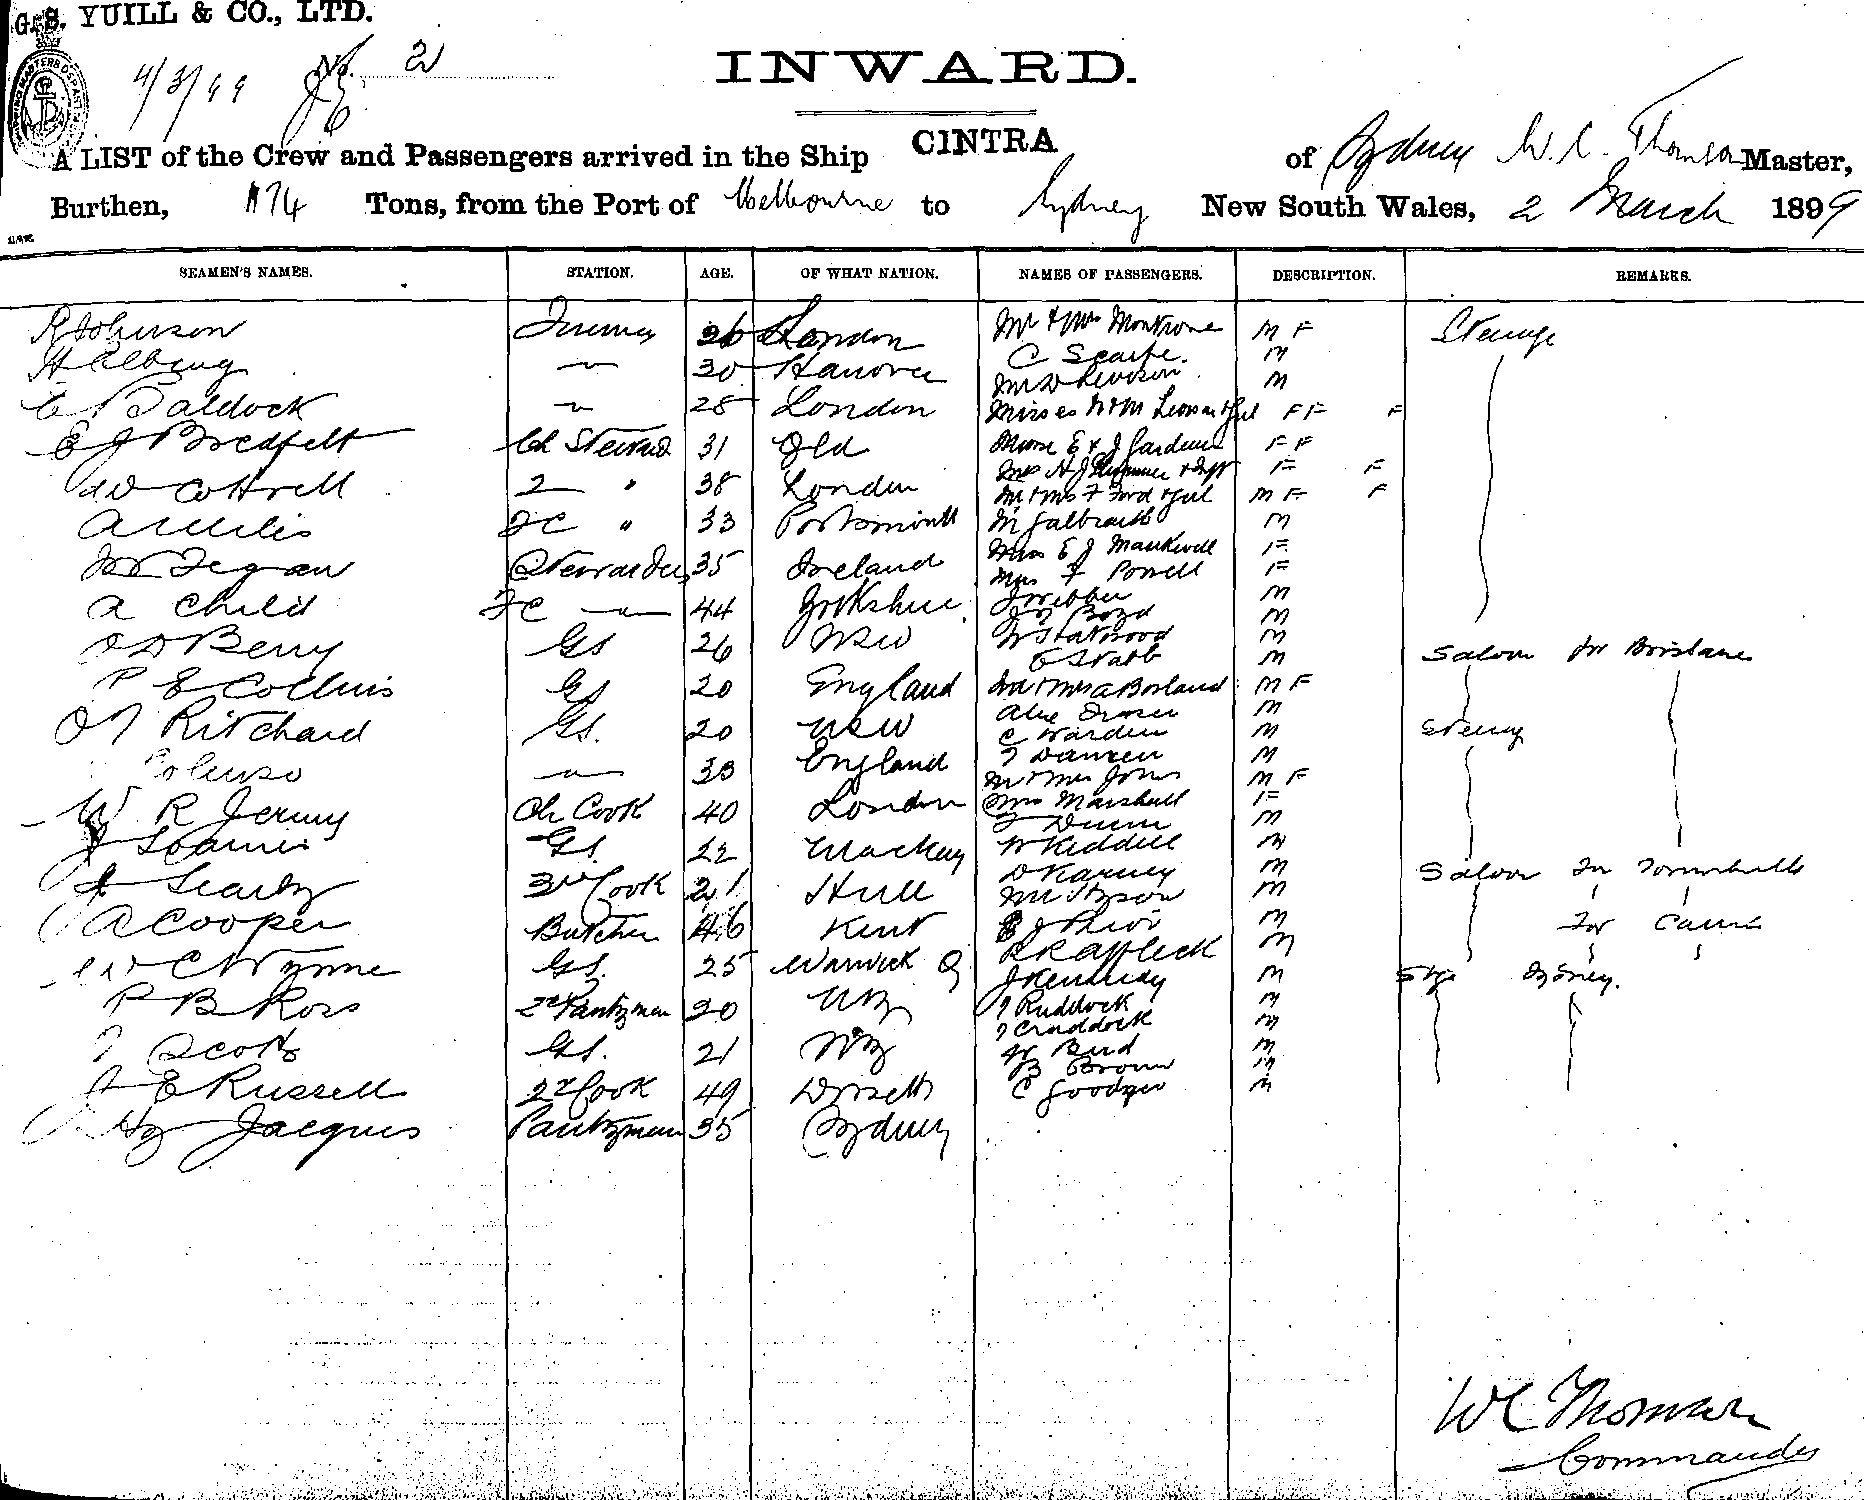 G. S. YUILL & CO., LTD.
4/3/99 No. 2
INWARD.
A LIST of the Crew and Passengers arrived in the Ship CINTRA of Sydney W. C. Thomson Master,
Burthen, 1174 Tons, from the Port of Melbourne to Sydney New South Wales, 2 March 1899
SEAMEN'S NAMES. STATION. AGE. OF WHAT NATION. NAMES OF PASSENGERS. DESCRIPTION. REMARKS.
R Johnson 26 London Mr & Mrs Montrose M F Steerage
30 Hanover C Scarfe. M
Mr D Levison M
Baldock 28 London Misses F F F
E J Bredfelt Ch Steward 31 Qld E & J Gardner F F
Mrs H J F F
W Cottrell 2 " 38 London Mr & Mrs F Ford & Girl M F F
33 Portsmouth Mr Galbraith M
Miss E J Mankwell F
Fegan Stewardess 35 Ireland Mrs F Powell F
A Child FC 44 Yorkshire J Webber M
J Boyd M
Berry GS 26 NSW M
E Stabb M Saloon for Brisbane
P E Collins GS 20 England Mr & Mrs A Borland M F
Alex Fraser M
Ritchard GS. 20 NSW C Warden M Steerage
33 England M
Mr & Mrs Jones M F
W R Jermy Ch Cook 40 London Mrs Marshall F
Dunn M
GS. 22 Mackay W Kiddell M
D Karney M Saloon for Townsville
3rd Cook 21 Hull Mr Hyson M
A Cooper Butcher 46 Kent J Prior M for Cairns
R R Affleck M
W C Wynne GS. 25 Warwick Q J Kennedy M Stge Sydney.
P B Ross 2nd Pantryman 20 NZ T Ruddock M
T Craddock M
T Scott GS. 21 NZ W Bird M
B Brown M
E Russell 2nd Cook 49 Dorset C Goodyer M
Hy Jacques Pantryman 35 Sydney
W C Thomson
Commander